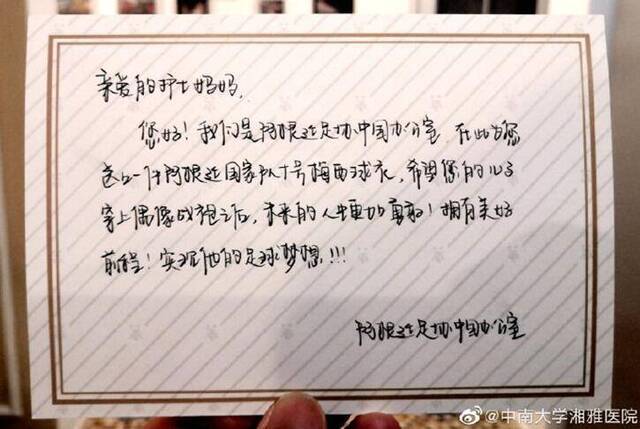 亲爱的护士妈妈,
您好!我们是阿根廷足协中国办公室,在此为您
送上一件阿根廷国家队十号梅西球衣,希望您的儿子
穿上偶像战袍之后,未来的人生更加勇敢!拥有美好
前程!实现他的足球梦想!!!
阿根廷足协中国办公室
@中南大学湘雅医院